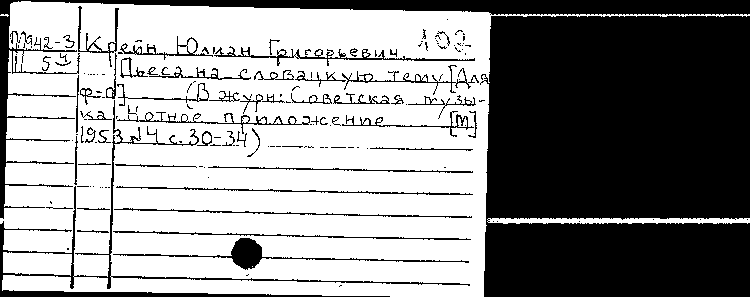 102
П942-3 Крейн, Юлиан Григорьевич.
54 Пьеса на словацкую тему [Для
ф-п] (В журн: Советская музы-
ка. Нотное приложение [М]
1953 №4 с. 30-34)